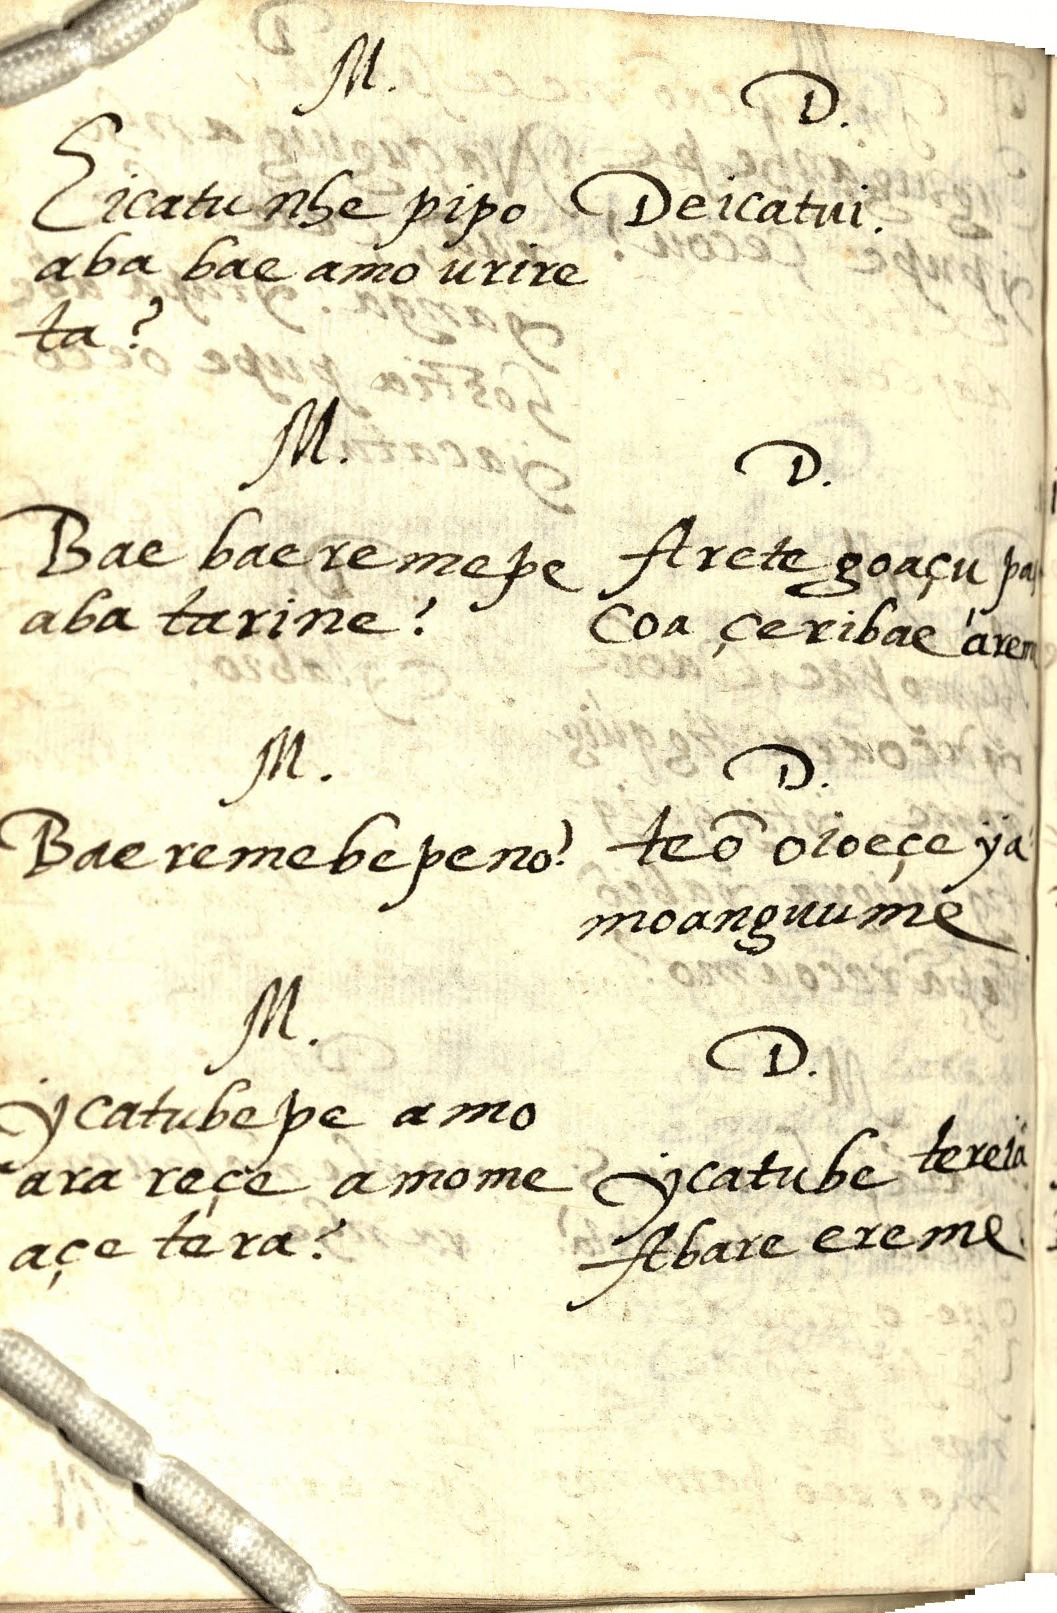 M.
Eicatu nhe pipo
aba bae amo urire
ta?
D.
Deicatui.
M.
Bae bae remepe
aba tarine?
D.
Arete goaçu pa
Coa çeribae árem
M.
Bae remebepeno?
D.
teõ oioeçe ÿa
moanguume
M.
ÿcatubepe amo
ara reçe amome
açe téra?
D.
ÿcatube tereiã
Abare ereme